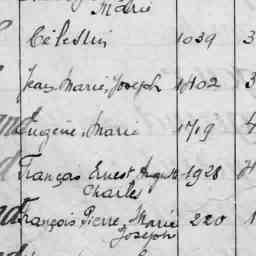 Marie
Célestin 1039 3
Jean, Marie, Joseph 1402 3
and Eugène, Marie 1719 4
François Ernest August 1928 4
Charles
and François Pierre, Marie 220 1
Joseph